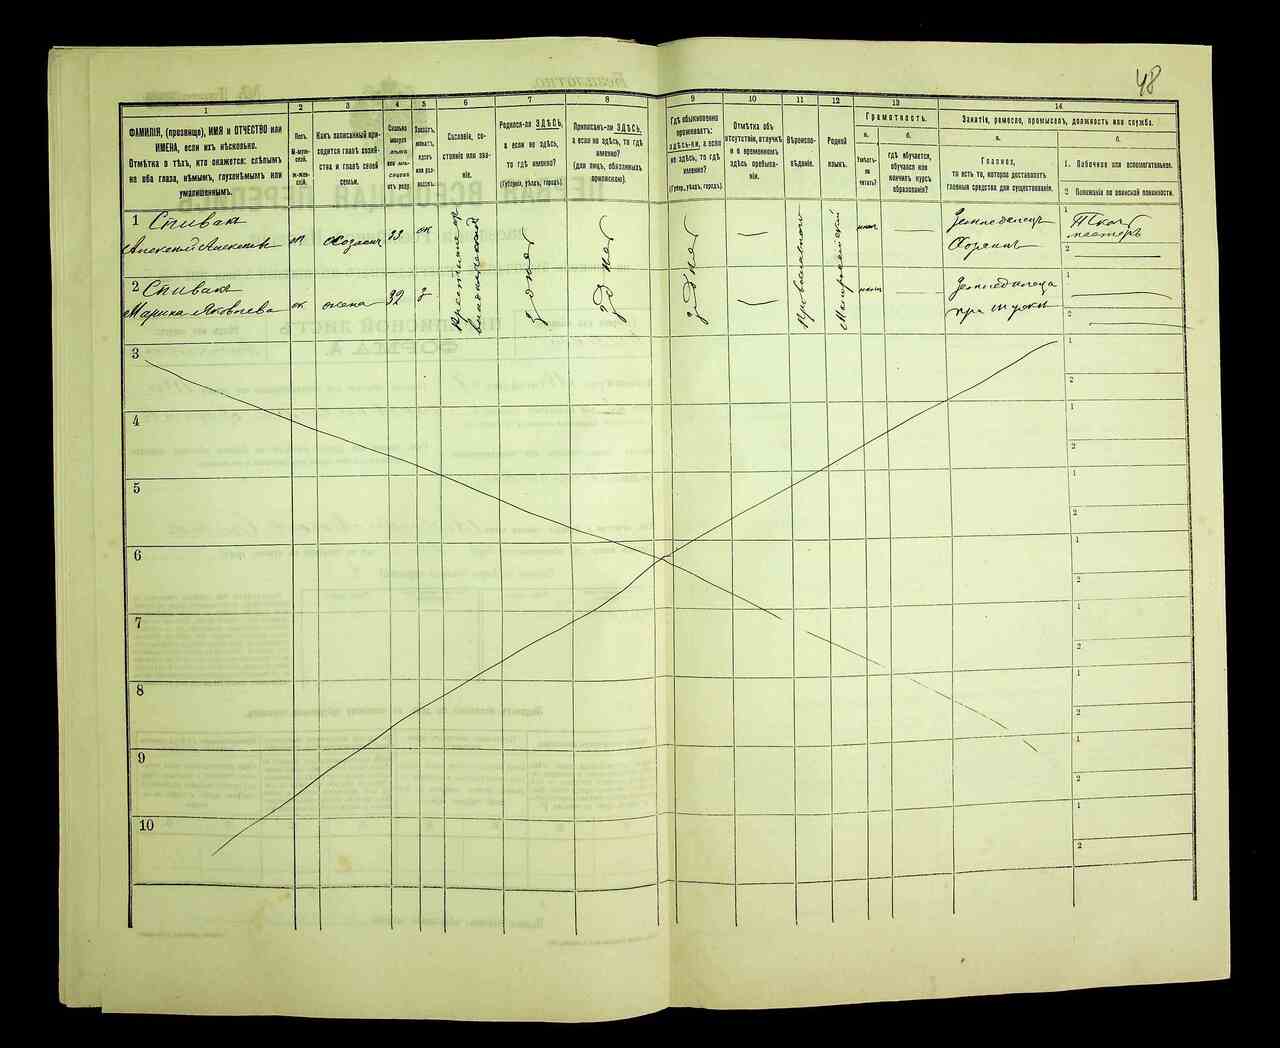 48
1
2
3
4
5
6
7
8
9
10
11
12
13
14
ФАМИЛІЯ, (прозвище), ИМЯ и ОТЧЕСТВО или
ИМЕНА, если ихъ нѣсколько.
Отмѣтка о тѣхъ, кто окажется: слѣпымъ
на оба глаза, нѣмымъ, глухонѣмымъ или
умалишеннымъ.
Полъ.
М-муж-
ской.
Ж-жен-
скій.
Какъ записанный при-
ходится главѣ хозяй-
ства и главѣ своей
семьи.
Сколько
минуло
лѣтъ
или мѣ-
сяцевъ
отъ роду.
Холостъ,
женатъ,
вдовъ
или раз-
веденъ.
Сословіе, со-
стояніе или зва-
ніе.
Родился-ли ЗДѢСЬ,
а если не здѣсь,
то гдѣ именно?
(Губернія, уѣздъ, городъ).
Приписанъ-ли ЗДѢСЬ,
а если не здѣсь, то гдѣ
именно?
(для лицъ, обязанныхъ
припискою).
Гдѣ обыкновенно
проживаетъ:
здѣсь-ли, а если
не здѣсь, то гдѣ
именно?
(Губер., уѣздъ, городъ).
Отмѣтка объ
отсутствіи, отлучкѣ
и о временномъ
здѣсь пребыва-
ніи.
Вѣроиспо-
вѣданіе.
Родной
языкъ.
Грамотность.
а.
Умѣетъ-
ли
читать?
б.
гдѣ обучается,
обучался или
кончилъ курсъ
образованія?
Занятіе, ремесло, промыселъ, должность или служба.
а.
Главное,
то есть то, которое доставляетъ
главныя средства для существованія.
б.
1. Побочное или вспомогательное.
2 Положеніе по воинской повинности.
1 Спивак
Алексей Алексеев
м
хозяин
33
ж
здѣсь
здѣсь
здѣсь
—
Православного
Малорусский
—
Земледелец
Хозяин
1
Ткач
мастеръ
2
2 Спивак
Марина Яковлева
ж
жена
32
з
—
—
Земледелица
при муже
1
2
3
1
2
4
1
2
5
1
2
6
1
2
7
1
2
8
1
2
9
1
2
10
1
2